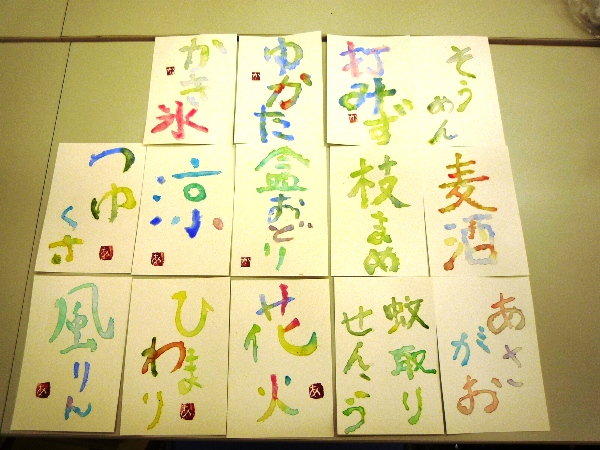 かき氷
ゆかた
打みず
そう
めん
つゆ
くさ
涼
盆おどり
枝まめ
麦酒
風りん
ひま
わり
花火
蚊取り
せんこう
あさ
がお